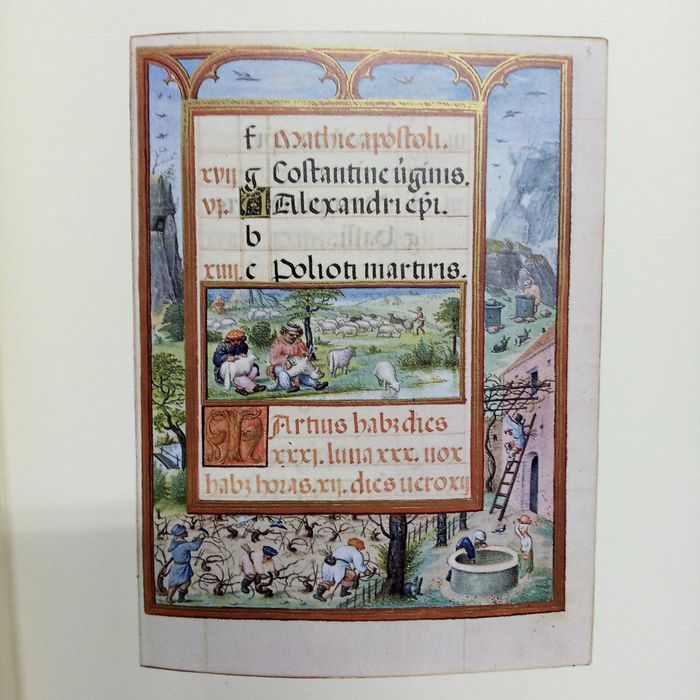 f Mathie apostoli.
xvij g Costantine ṽginis.
vj. A Alexandri ep̄i.
b
xiiij. c Polioti martiris.
Martius habꝫ dies
xxxj. luna xxx. nox
habꝫ horas. xij. dies ṽero xij